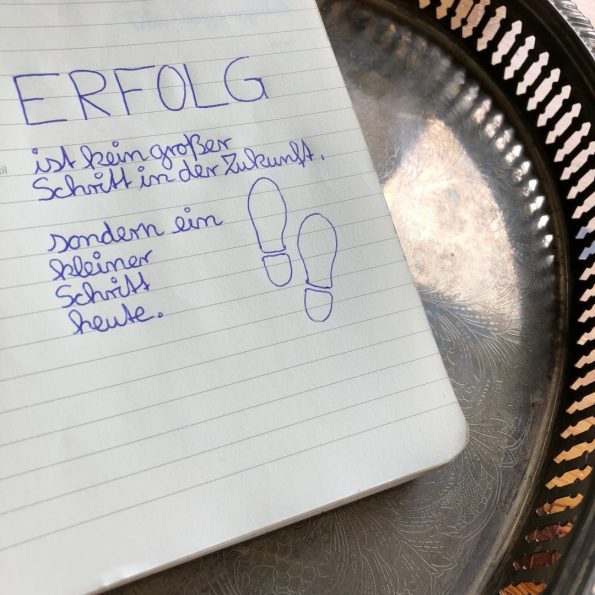 ERFOLG
ist kein großer
Schritt in der Zukunft,
sondern ein
kleiner
Schritt
heute.